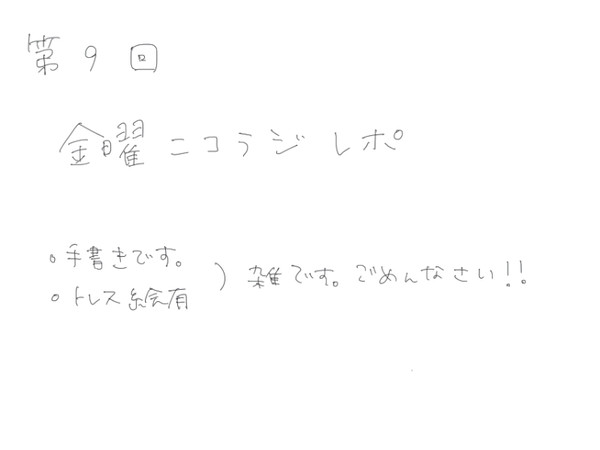 第9回
金曜ニコラジレポ
○手書きです。
○トレス絵有
)雑です。ごめんなさい!!